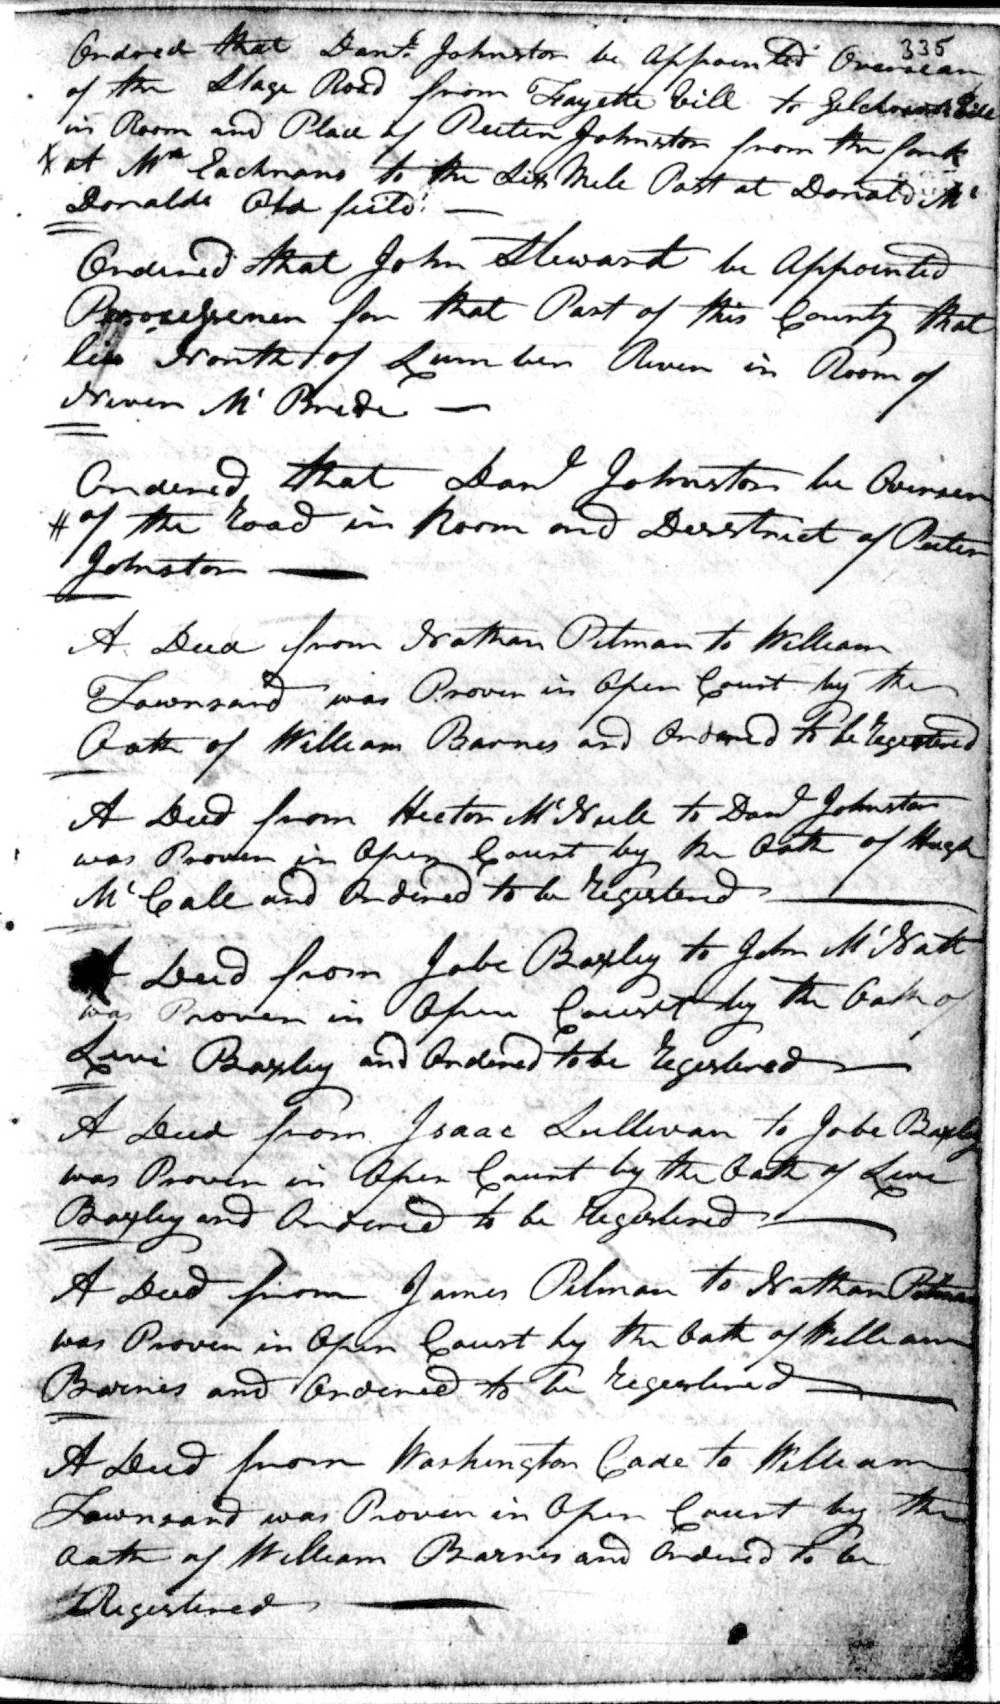 335
Ordered that Danl. Johnston be Appointed Overseear
of the Stage Road from Fayette Vill to
in Room and Place of Peeter Johnston from the fork
X at Mc Eachrans to the Six Mile Post at Donald Mc
Donalds Old field —
Ordered that John Steward be Appointed
for that Part of this County that
lies North of Lumber River in Room of
Niven Mc Bride —
Ordered that Danl Johnston be Overseer
# of the Road in Room and Desstrict of Peeter
Johnston —
A Deed from Nathan Pitman to William
Townsand was Proven in Open Court by the
Oath of William Barnes and Ordered to be Registered
A Deed from Hector Mc Neill to Danl Johnston
was Proven in Open Court by the Oath of Hugh
Mc Call and Ordered to be Registered —
A Deed from Jobe Baxley to John Mc Natt
was Proven in Open Court by the Oath of
Levi Baxley and Ordered to be Registered —
A Deed from Isaac Sullivan to Jobe Baxley
was Proven in Open Court by the Oath of Levi
Baxley and Ordered to be Registered —
A Deed from James Pitman to Nathan Pitman
was Proven in Open Court by the Oath of William
Barnes and Ordered to be Registered —
A Deed from Washington Cade to William
Townsand was Proven in Open Court by the
Oath of William Barnes and Ordered to be
Registered —